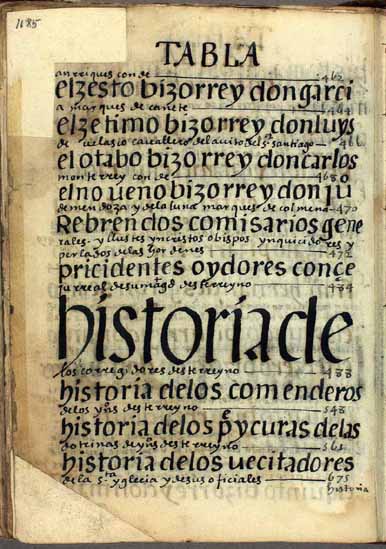 1185
TABLA
anrriques conde 462
el zesto bizorrey don garci
a marques de cañete 464
el zetimo bizorrey don luys
de uelasco cauallero del auito del s. santiago 466
el otabo bizorrey don carlos
monterrey conde 4680
el noueno bizorrey don ju
de mendoza y de la luna marques de 470
Rebrendos comisarios gene
rales y llustes y obispos ynquicidores y
perlados de las hordenes 472
pricidentes oydores conce
ju rreal de su magd deste rreyno 484
historia de
los corregidores deste rreyno 488
historia de los comenderos
de los yñs deste rreyno 548
historia de los pe y curas de las
dotrinas de yñs deste rreyno 561
historia de los uecitadores
de la sta yglecia y de sus oficiales 675
historia